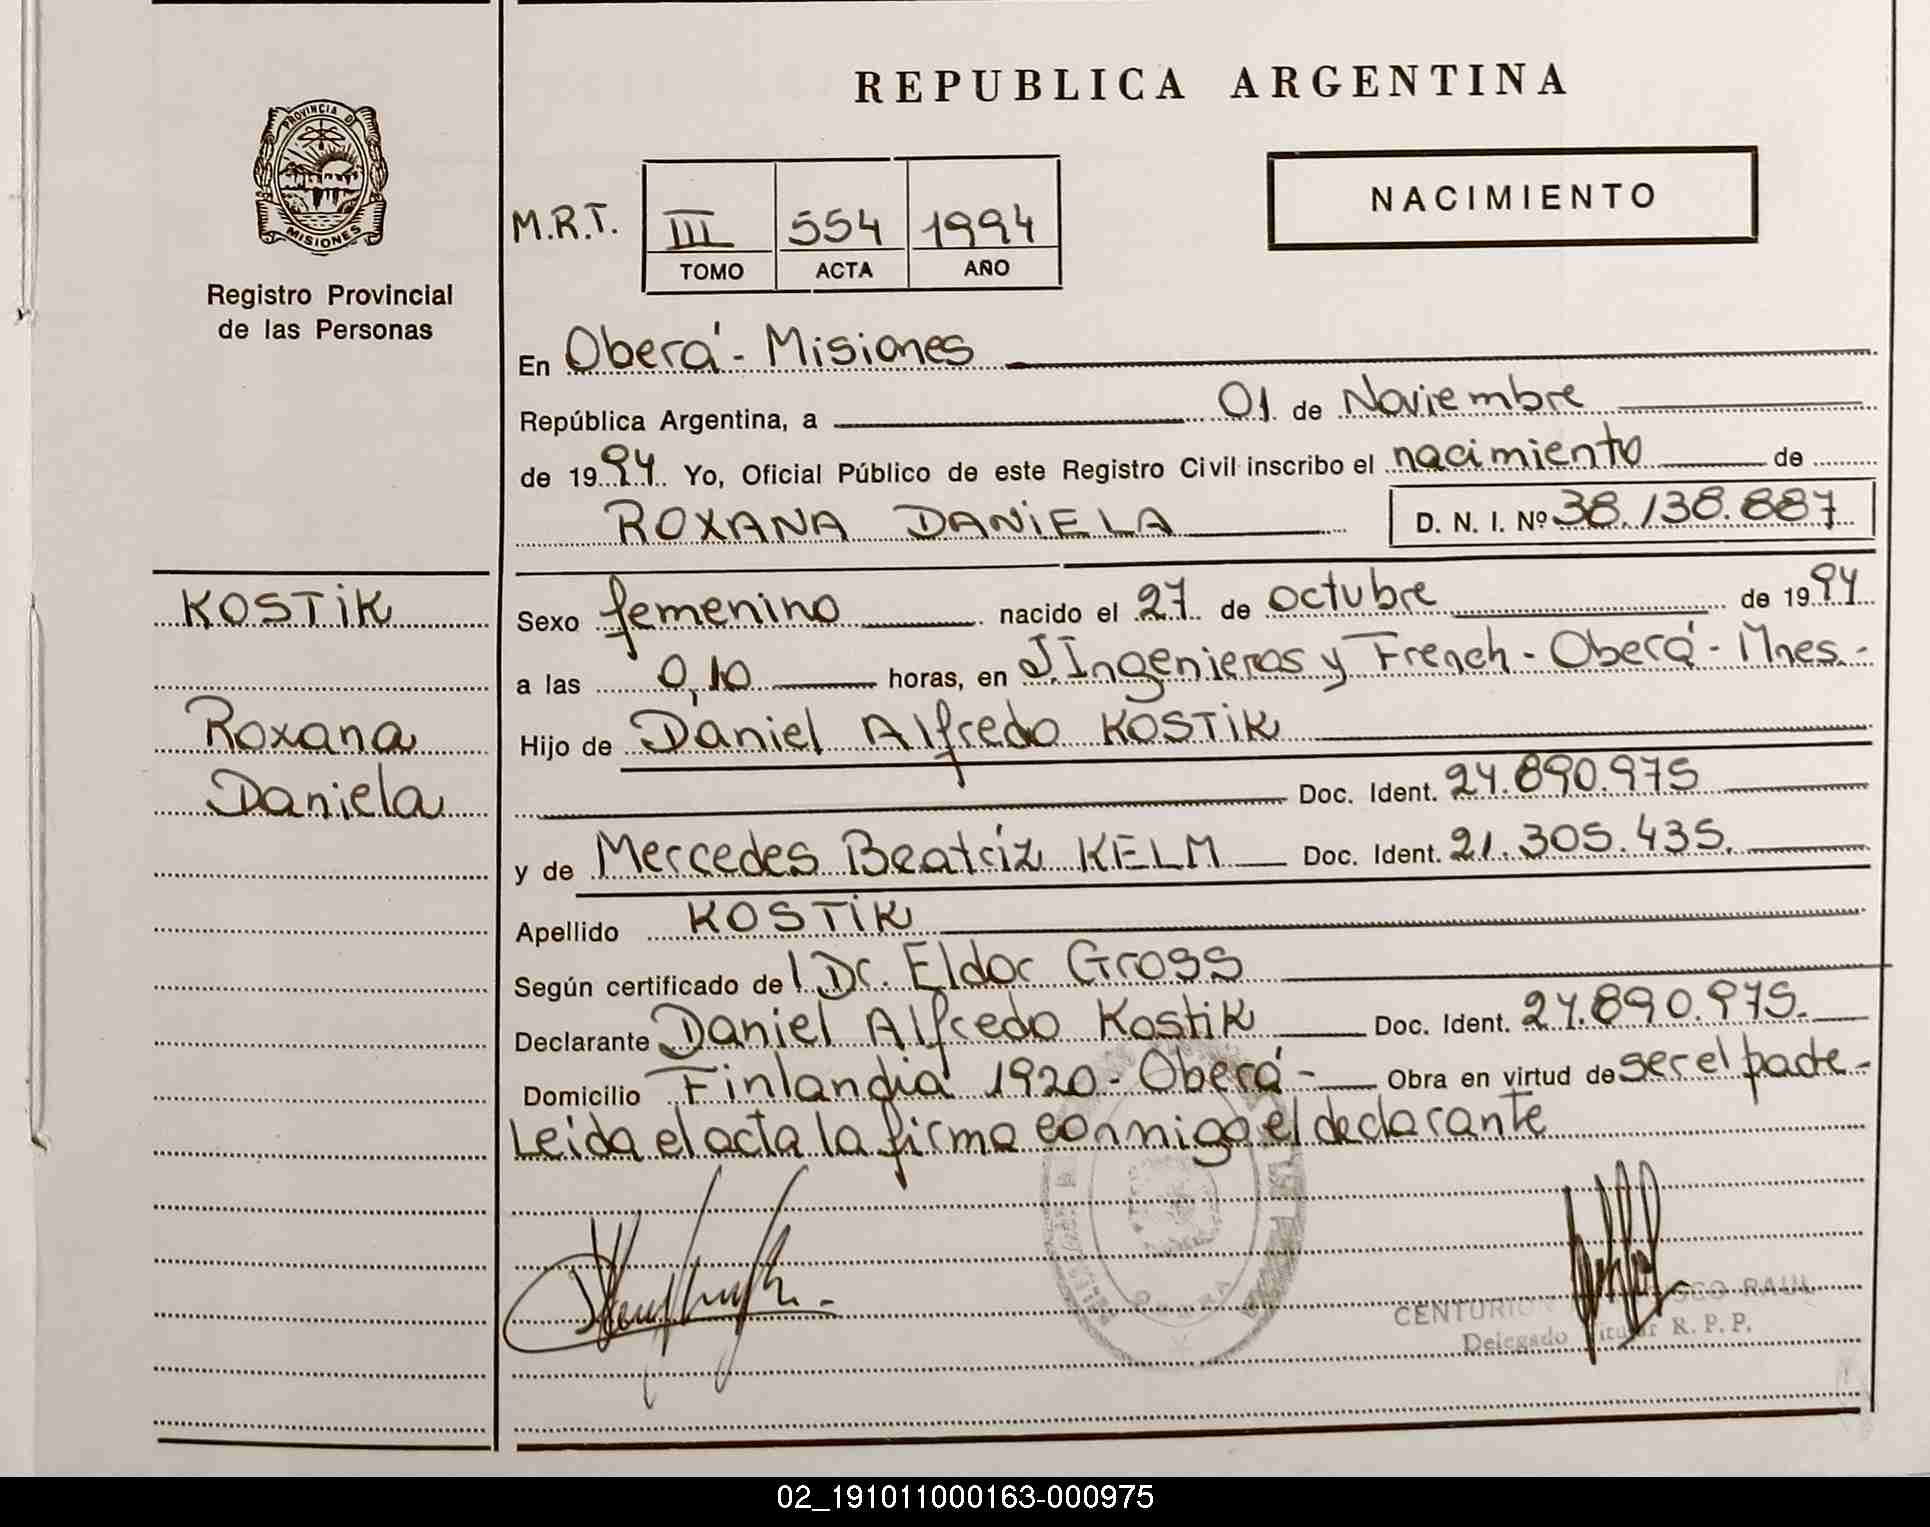 REPUBLICA ARGENTINA
PROVINCIA DE
MISIONES
Registro Provincial
de las Personas
NACIMIENTO
M.R.T. III 554 1994
TOMO ACTA AÑO
En Oberá - Misiones
República Argentina, a 01 de Noviembre
de 1994 Yo, Oficial Público de este Registro Civil inscribo el nacimiento de
ROXANA DANIELA D. N. I. Nº 38.138.887
KOSTIK
Roxana
Daniela
Sexo femenino nacido el 27 de octubre de 1994
a las 0,10 horas, en J. Ingenieros y French - Oberá - Mnes.-
Hijo de Daniel Alfredo KOSTIK
Doc. Ident. 24.890.975
y de Mercedes Beatriz KELM Doc. Ident. 21.305.435.
Apellido KOSTIK
Según certificado de l Dr. Eldor Gross
Declarante Daniel Alfredo Kostik Doc. Ident. 24.890.975.
Domicilio Finlandia 1920 - Oberá - Obra en virtud de ser el padre -
Leida el acta la firma conmigo el declarante
CENTURION RAUL
Delegado Titular R. P. P.
02_191011000163-000975